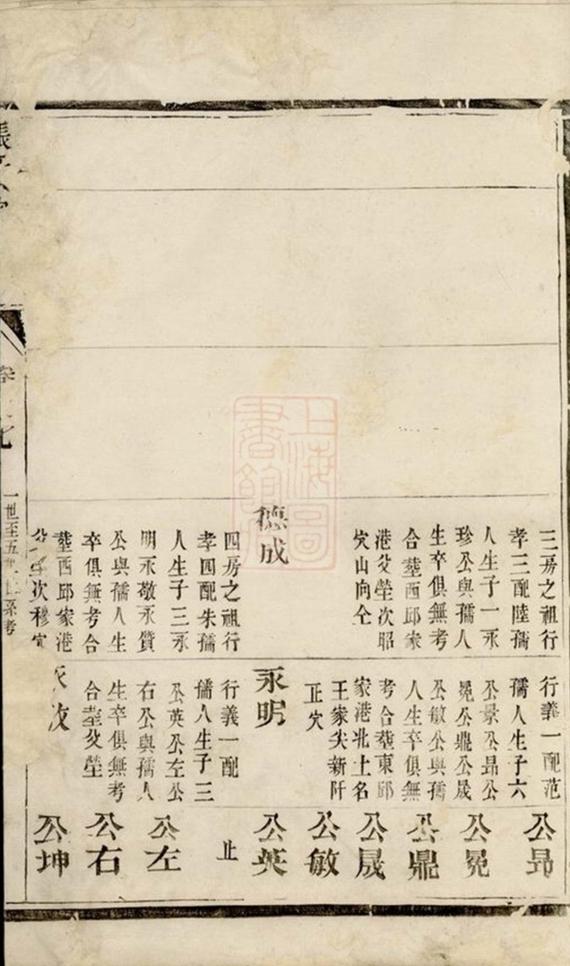 三房之祖行
孝三配陸孺
人生子一永
珍公與孺人
生卒俱無考
合墓西邱家
港父塋次昭
穴山向仝
德成
四房之祖行
孝四配朱孺
人生子三永
明永敬永贊
公與孺人生
卒俱無考合
墓西邱家港
父塋次穆穴
行義一配范
孺人生子六
公景公昻公
冕公鼎公晟
公敏公與孺
人生卒俱無
考合墓東邱
家港北土名
王家尖新阡
正穴
永明
行義一配
孺人生子三
公英公左公
右公與孺人
生卒俱無考
合墓父塋
公昻
公冕
公鼎
公晟
公敏
公英
止
公左
公右
公坤
卷
七
一世至五
系考